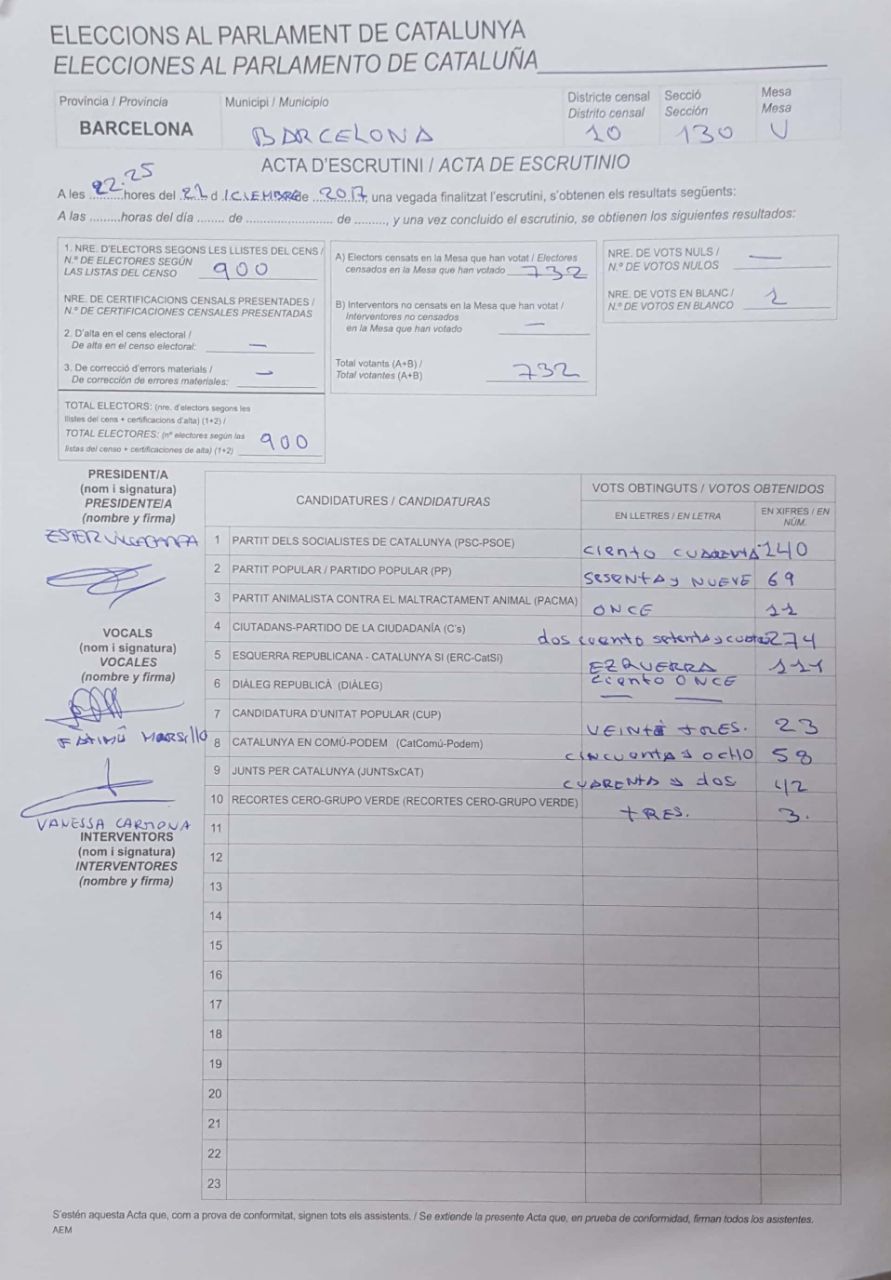 ELECCIONS AL PARLAMENT DE CATALUNYA
ELECCIONES AL PARLAMENTO DE CATALUÑA
Província / Provincia
BARCELONA
Municipi / Municipio
BARCELONA
Districte censal
Distrito censal
10
Secció
Sección
130
Mesa
Mesa
U
ACTA D'ESCRUTINI / ACTA DE ESCRUTINIO
A les 22.25 hores del 21 d ICIEMBRE de 2017, una vegada finalitzat l'escrutini, s'obtenen els resultats següents:
A las .........horas del día ........ de ......................... de .........., y una vez concluido el escrutinio, se obtienen los siguientes resultados:
1. NRE. D'ELECTORS SEGONS LES LLISTES DEL CENS /
N.º DE ELECTORES SEGÚN
LAS LISTAS DEL CENSO 900
NRE. DE CERTIFICACIONS CENSALS PRESENTADES /
N.º DE CERTIFICACIONES CENSALES PRESENTADAS
2. D'alta en el cens electoral /
De alta en el censo electoral: —
3. De correcció d'errors materials /
De corrección de errores materiales: —
TOTAL ELECTORS: (nre. d'electors segons les
llistes del cens + certificacions d'alta) (1+2) /
TOTAL ELECTORES: (nº electores según las
listas del censo + certificaciones de alta) (1+2) 900
A) Electors censats en la Mesa que han votat / Electores
censados en la Mesa que han votado 732
B) Interventors no censats en la Mesa que han votat /
Interventores no censados
en la Mesa que han votado —
Total votants (A+B) /
Total votantes (A+B) 732
NRE. DE VOTS NULS /
N.º DE VOTOS NULOS —
NRE. DE VOTS EN BLANC /
N.º DE VOTOS EN BLANCO 1
PRESIDENT/A
(nom i signatura)
PRESIDENTE/A
(nombre y firma)
ESTER
VOCALS
(nom i signatura)
VOCALES
(nombre y firma)
VANESSA CARMONA
INTERVENTORS
(nom i signatura)
INTERVENTORES
(nombre y firma)
CANDIDATURES / CANDIDATURAS
VOTS OBTINGUTS / VOTOS OBTENIDOS
EN LLETRES / EN LETRA
EN XIFRES / EN NÚM.
1 PARTIT DELS SOCIALISTES DE CATALUNYA (PSC-PSOE) ciento cuarenta 140
2 PARTIT POPULAR / PARTIDO POPULAR (PP) sesenta y NUEVE 69
3 PARTIT ANIMALISTA CONTRA EL MALTRACTAMENT ANIMAL (PACMA) ONCE 11
4 CIUTADANS-PARTIDO DE LA CIUDADANÍA (C's) dos ciento setenta y cuatro 274
5 ESQUERRA REPUBLICANA - CATALUNYA SI (ERC-CatSí) EZQUERRA 111
ciento ONCE
6 DIÀLEG REPUBLICÀ (DIÀLEG) — —
7 CANDIDATURA D'UNITAT POPULAR (CUP) VEINTE TRES. 23
8 CATALUNYA EN COMÚ-PODEM (CatComú-Podem) CINCUENTA y OCHO 58
9 JUNTS PER CATALUNYA (JUNTSxCAT) CUARENTA y dos 42
10 RECORTES CERO-GRUPO VERDE (RECORTES CERO-GRUPO VERDE) TRES. 3.
11
12
13
14
15
16
17
18
19
20
21
22
23
S'estén aquesta Acta que, com a prova de conformitat, signen tots els assistents. / Se extiende la presente Acta que, en prueba de conformidad, firman todos los asistentes.
AEM